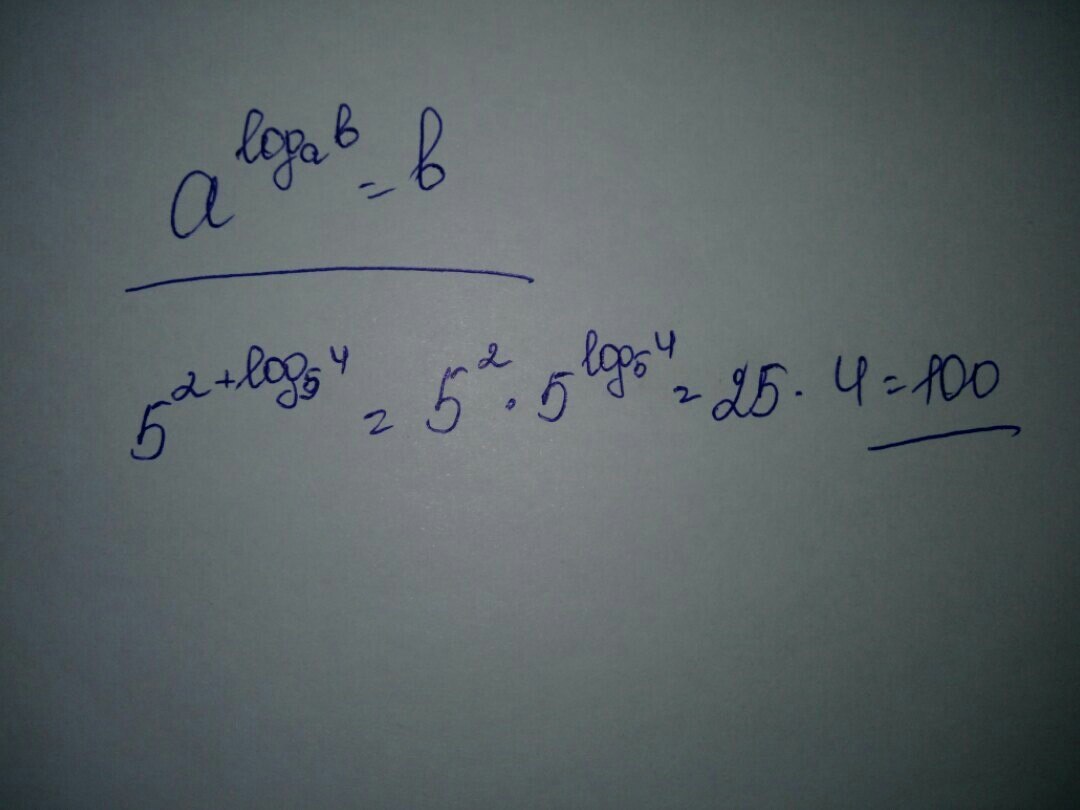 a^{log_a b} = b
5^{2+log_5 4} = 5^2 · 5^{log_5 4} = 25 · 4 = 100